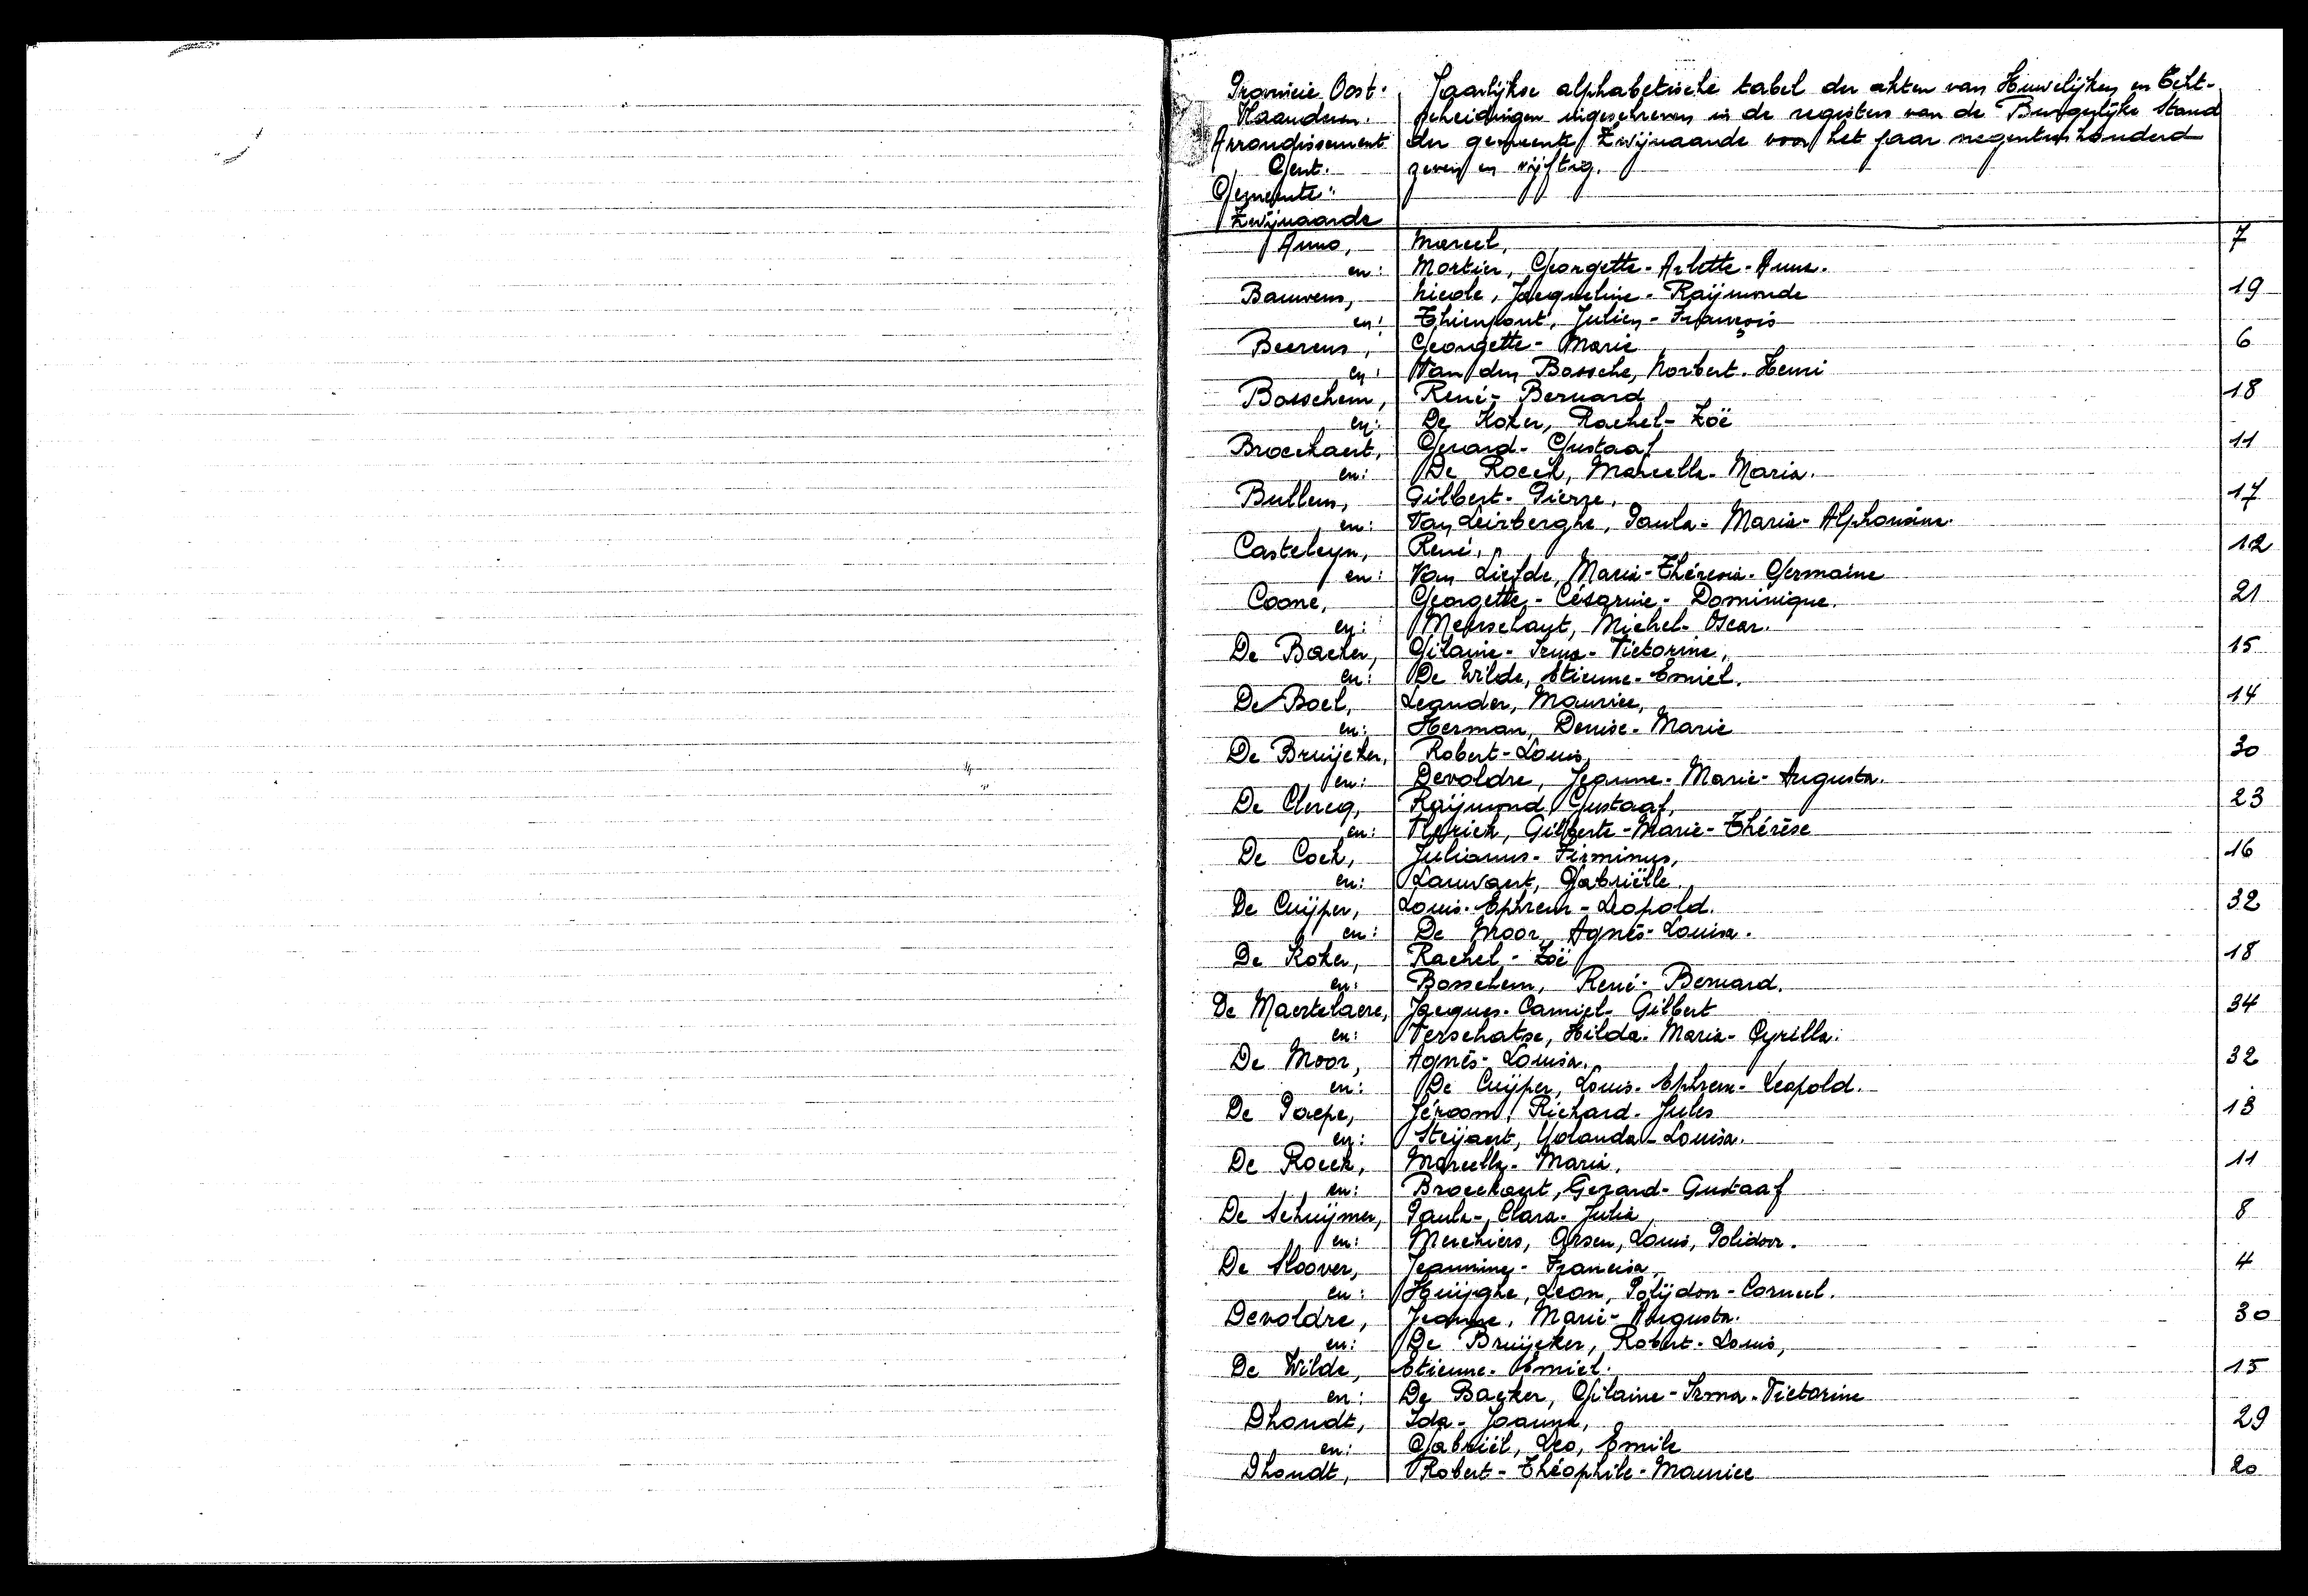 Provincie Oost- Jaarlijkse alphabetische tabel der akten van Huwelijken en Echt-
Vlaanderen. scheidingen ingeschreven in de registers van de Burgerlijke Stand
Arrondissement der gemeente Zwijnaarde voor het jaar negentienhonderd
Gent. zeven en vijftig.
Gemeente:
Zwijnaarde
Anno, Marcel, 7
en: Mortier, Georgette-Arlette-Anna.
Bauwens, Nicole, Jacqueline-Raÿmonde 19
en: Thienpont, Julien-François
Beerens, Georgette-Marie 6
en: Van den Bossche, Norbert-Henri
Bosschem, René-Bernard 18
en: De Koker, Rachel-Zoë
Broeckaert, Gerard-Gustaaf 11
en: De Roeck, Marcella-Maria.
Bullens, Gilbert-Pierre, 17
en: Van Leirberghe, Paula-Maria-Alphonsine.
Casteleyn, René, 12
en: Van Liefde, Maria-Thérésia-Germaine
Coone, Georgette-Césarine-Dominique. 21
en: Meerschaut, Michel-Oscar.
De Backer, Gilaine-Irma-Victorine, 15
en: De Wilde, Etienne-Emiel.
De Boel, Leander, Maurice, 14
en: Herman, Denise-Marie
De Bruÿcker, Robert-Louis, 30
en: Devoldre, Jeanne-Marie-Augusta.
De Clercq, Raÿmond, Gustaaf, 23
en: Flerick, Gilberte-Marie-Thérèse
De Cock, Julianus-Firminus, 16
en: Lauwaert, Gabriëlle.
De Cuÿper, Louis-Ephrem-Leopold. 32
en: De Moor, Agnès-Louisa.
De Koker, Rachel-Zoë 18
en: Bosschem, René-Bernard.
De Maertelaere, Jacques-Camiel-Gilbert 34
en: Verschatse, Hilda-Maria-Cyrilla.
De Moor, Agnès-Louisa. 32
en: De Cuÿper, Louis-Ephrem-Leopold.
De Paepe, Jéroom, Richard-Jules 13
en: Steÿaert, Yolanda-Louisa.
De Roeck, Marcella-Maria, 11
en: Broeckaert, Gerard-Gustaaf
De Schuÿmer, Paula-Clara-Julia 8
en: Merchiers, Arsen, Louis, Polidoor.
De Sloover, Jeannine-Francisca 4
en: Huÿghe, Leon, Polÿdoor-Corneel.
Devoldre, Jeanne, Marie-Augusta. 30
en: De Bruÿcker, Robert-Louis,
De Wilde, Etienne-Emiel. 15
en: De Backer, Gilaine-Irma-Victorine
Dhondt, Ida-Joanna, 29
en: Gabriël, Leo, Emile
Dhondt, Robert-Théophile-Maurice 20